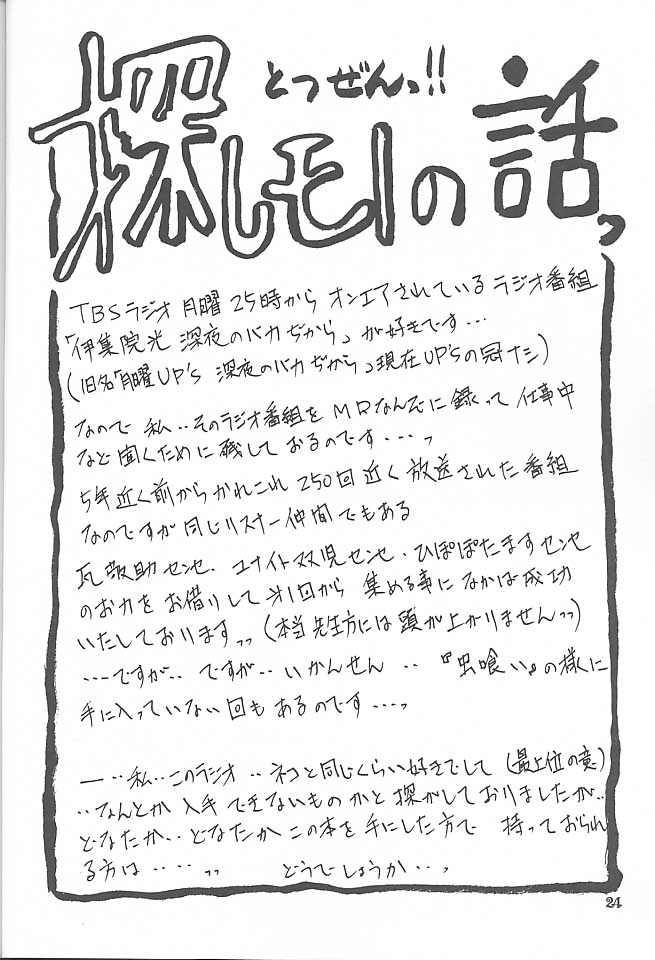 とつぜんっ!!
探しモノの話っ
TBSラジオ 月曜 25時から オンエアされている ラジオ番組
「伊集院光 深夜のバカぢから」が好きです…
(旧名「月曜UP's 深夜のバカぢから」現在UP'sの冠ナシ)
なので 私‥そのラジオ番組を MDなんぞに録って 仕事中
など聞くために残しておるのです…‥っ
5年近く前からかれこれ 250回近く放送された番組
なのですが同じリスナー仲間でもある
瓦敬助センセ・ユナイト双児センセ・ひぽぽたますセンセ
のお力をお借りして 第1回から 集める事に なかば成功
いたしておりますっっ(本当先生方には頭が上がりませんっっ)
…‥ですが‥ ですが‥ いかんせん ‥ 『虫喰い』の様に
手に入っていない回もあるのです…‥っ
― ‥私‥このラジオ‥ネコと同じくらい好きでして(最上位の意)
‥なんとか入手できないものかと探がしておりましたが‥
どなたか‥どなたかこの本を手にした方で 持っておられ
る方は‥‥っっ どうでしょうか‥っ
24